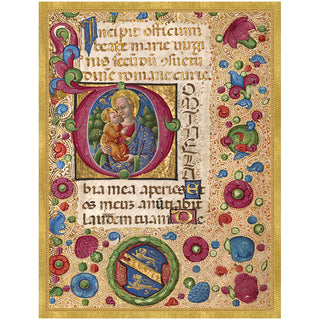 Incipit officium
beate marie virgi
nis secūdū ꝯsuetu
dinē romane curie.
D
OMI
NE LA
bia mea aperies. Et
os meum anūtiabit
laudem tuam.